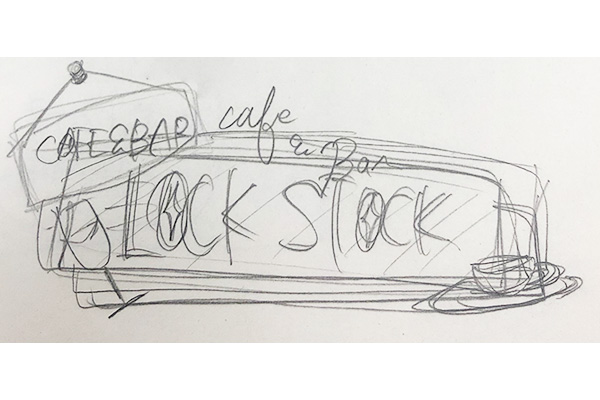 CAFE&BAR
cafe
& Bar
LOCK STOCK